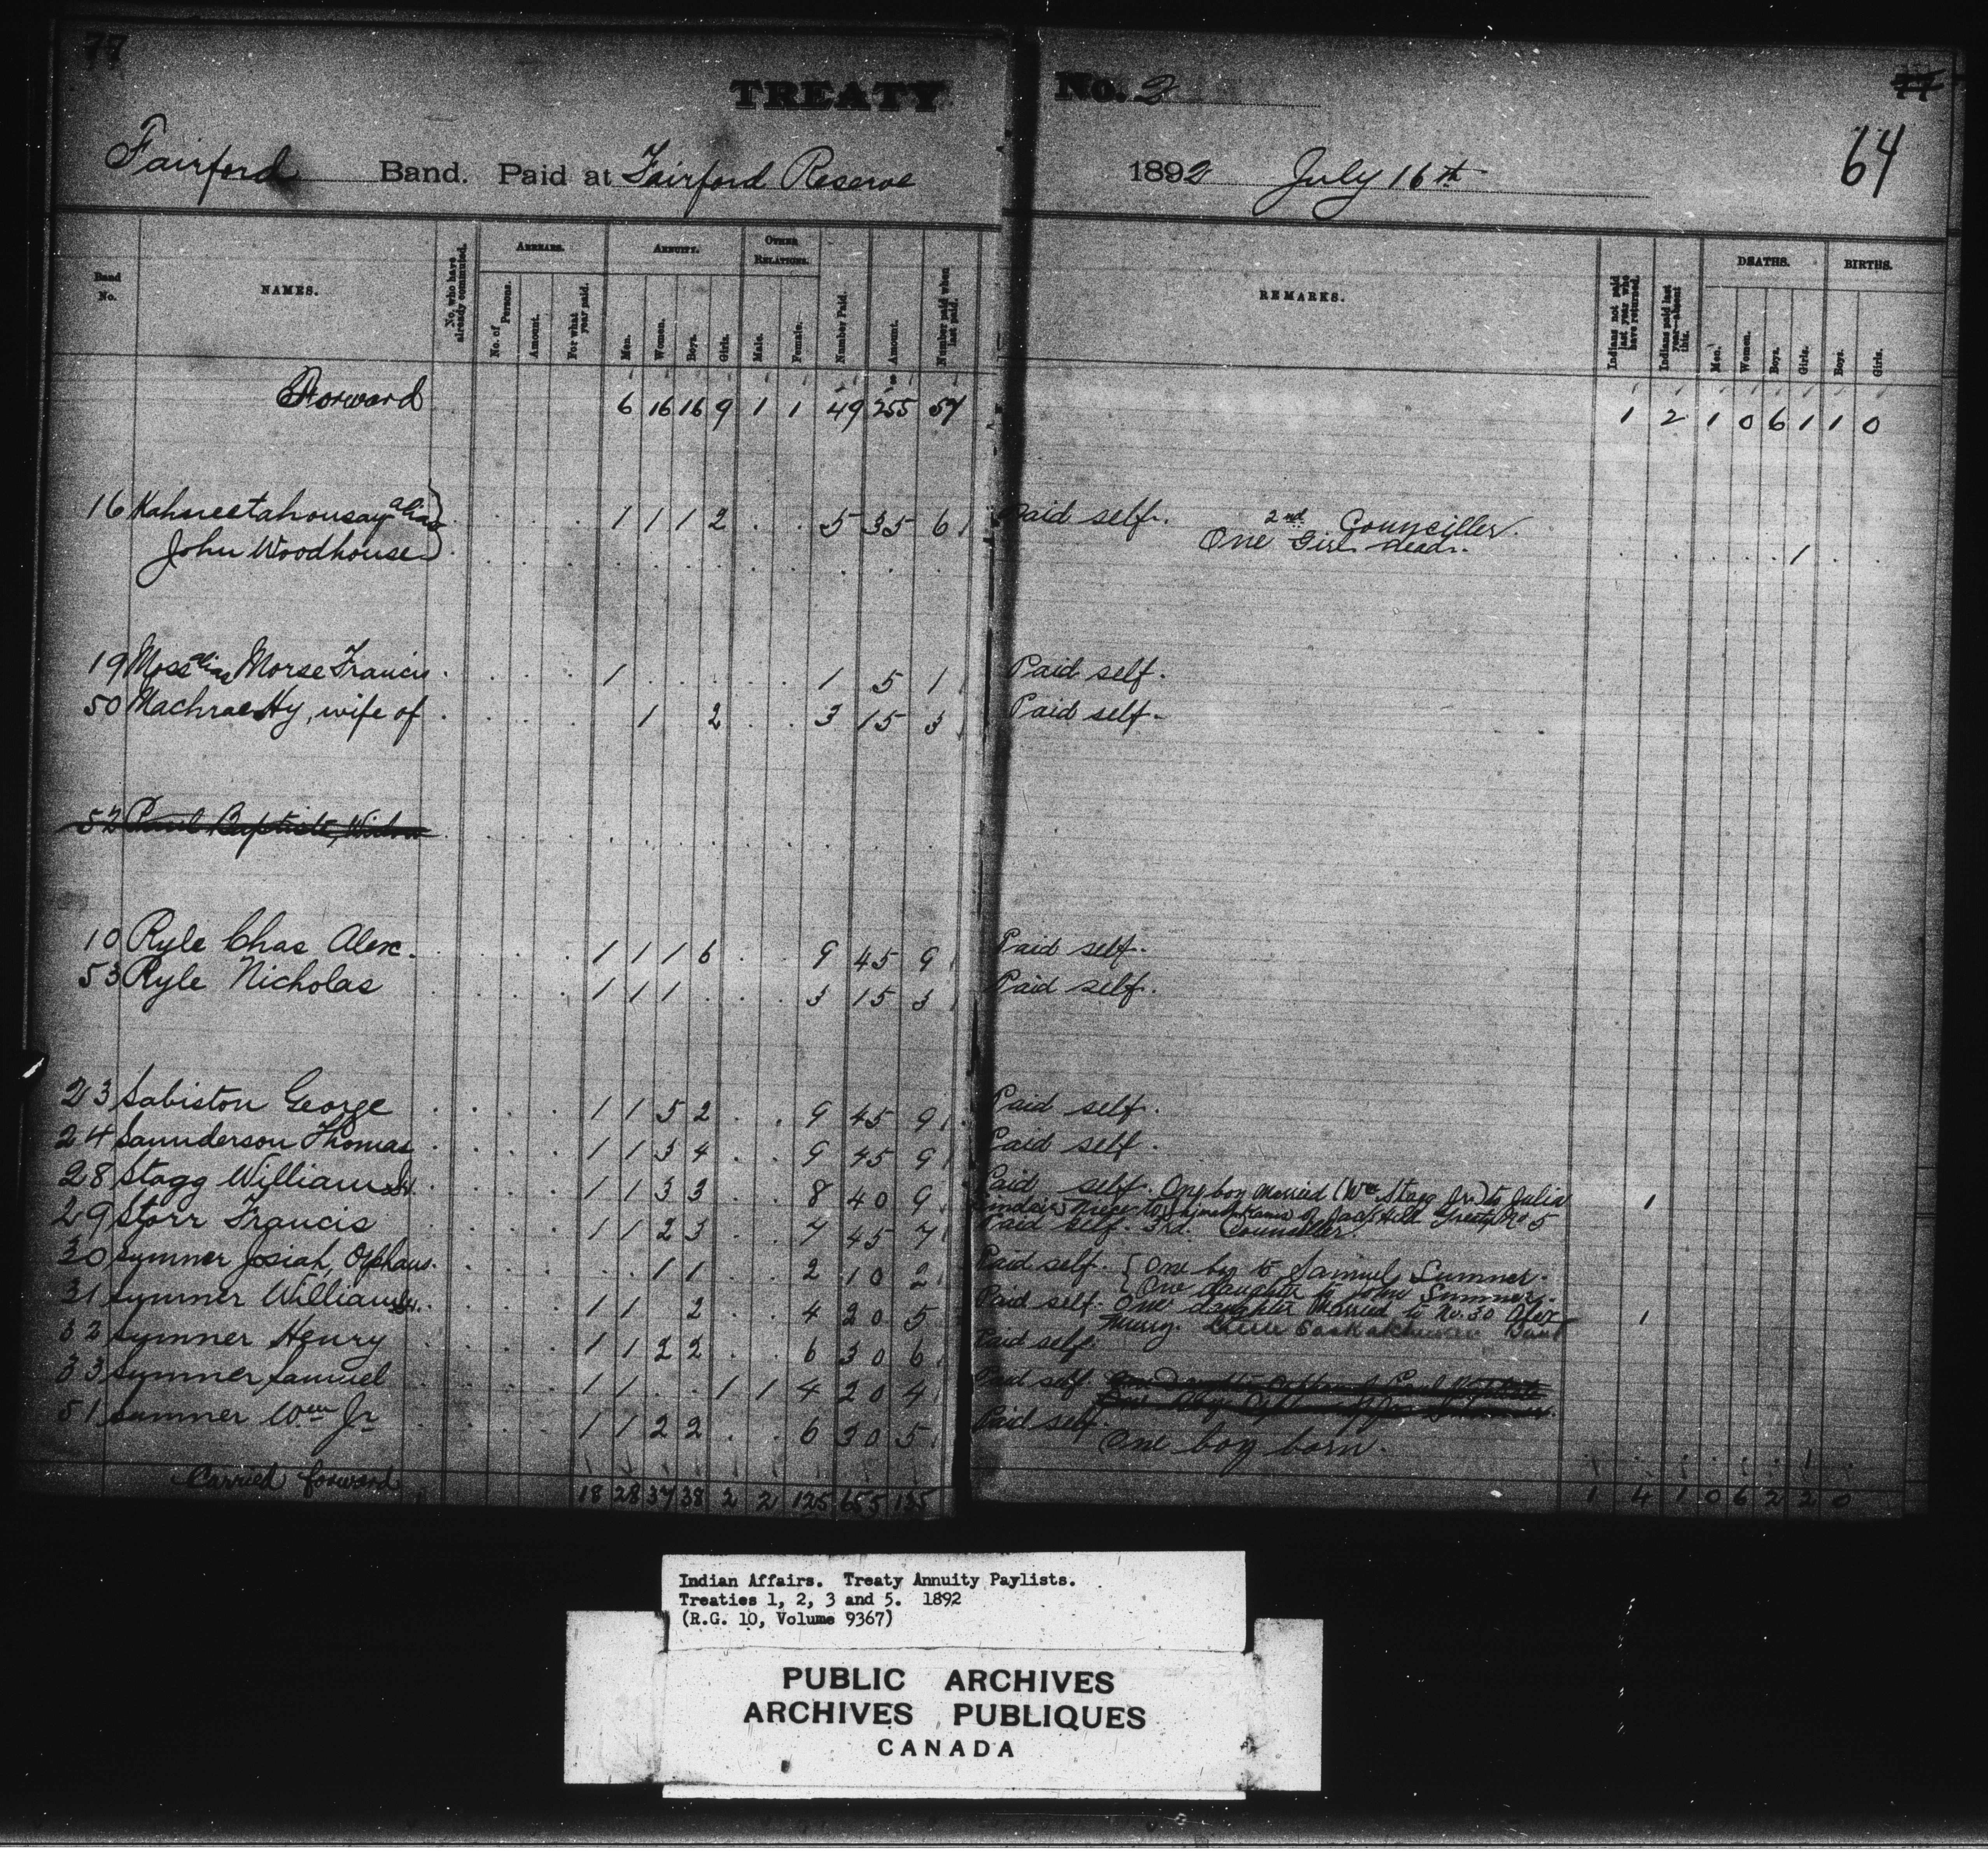 77
TREATY No. 2
77
64
Fairford Band. Paid at Fairford Reserve 1892 July 16th
Band No.
NAMES.
No. who have already commuted.
ARREARS.
No. of Persons.
Amount.
For what year paid.
ANNUITY.
Men.
Women.
Boys.
Girls.
OTHER RELATIONS.
Male.
Female.
Number Paid.
Amount.
Number paid when last paid.
REMARKS.
Indians not paid last year who have returned.
Indians paid last year—absent this.
DEATHS.
Men.
Women.
Boys.
Girls.
BIRTHS.
Boys.
Girls.
Forward 6 16 16 9 1 1 49 255 57 1 2 1 0 6 1 1 0
16 Kahneetahonsay alias 1 1 1 2 5 35 6 Paid self. 2nd Counciller.
John Woodhouse One Girl dead. 1
19 Moss alias Morse Francis 1 1 5 1 Paid self.
50 Machrae Hy, wife of 1 2 3 15 3 Paid self.
52 Paul Baptiste, Widow
10 Ryle Chas Alex. 1 1 1 6 9 45 9 Paid self.
53 Ryle Nicholas 1 1 1 3 15 3 Paid self.
23 Sabiston George 1 1 5 2 9 45 9 Paid self.
24 Saunderson Thomas 1 1 3 4 9 45 9 Paid self.
28 Stagg William Sr. 1 1 3 3 8 40 9 Paid self. One boy married (Wm Stagg Jr.) to Julia 1
Sinclair niece to of Jack Head Treaty No 5
29 Storr Francis 1 1 2 3 7 45 7 Paid self. 3rd. Counciller.
30 Sumner Josiah, Orphans. 1 1 2 10 2 Paid self. { One boy to Samuel Sumner.
{ One daughter to John Sumner.
31 Sumner William Sr. 1 1 2 4 20 5 Paid self. One daughter married to No. 30 Alex 1
Band
32 Sumner Henry 1 1 2 2 6 30 6 Paid self.
33 Sumner Samuel 1 1 1 1 4 20 4 Paid self
51 Sumner Wm Jr 1 1 2 2 6 30 5 Paid self.
One boy born. 1
Carried forward 18 28 37 38 2 2 125 655 135 1 4 1 0 6 2 2 0
Indian Affairs. Treaty Annuity Paylists.
Treaties 1, 2, 3 and 5. 1892
(R.G. 10, Volume 9367)
PUBLIC ARCHIVES
ARCHIVES PUBLIQUES
CANADA